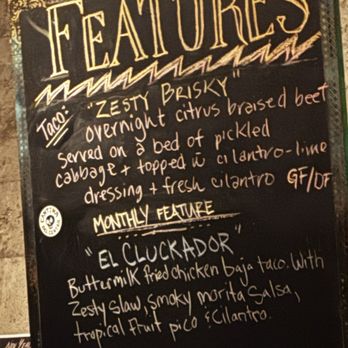 FEATURES
Taco: "ZESTY BRISKY"
overnight citrus braised beef
served on a bed of pickled
cabbage + topped w̄ cilantro-lime
dressing + fresh cilantro GF/DF
MONTHLY FEATURE
"EL CLUCKADOR"
Buttermilk fried chicken baja taco. With
Zesty slaw, smoky morita salsa,
tropical fruit pico & Cilantro.